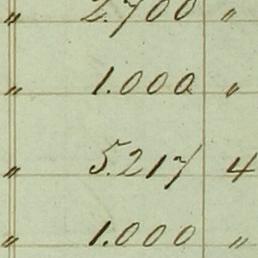 " 2.700 "
" 1.000 "
" 5.217 4
" 1.000 "